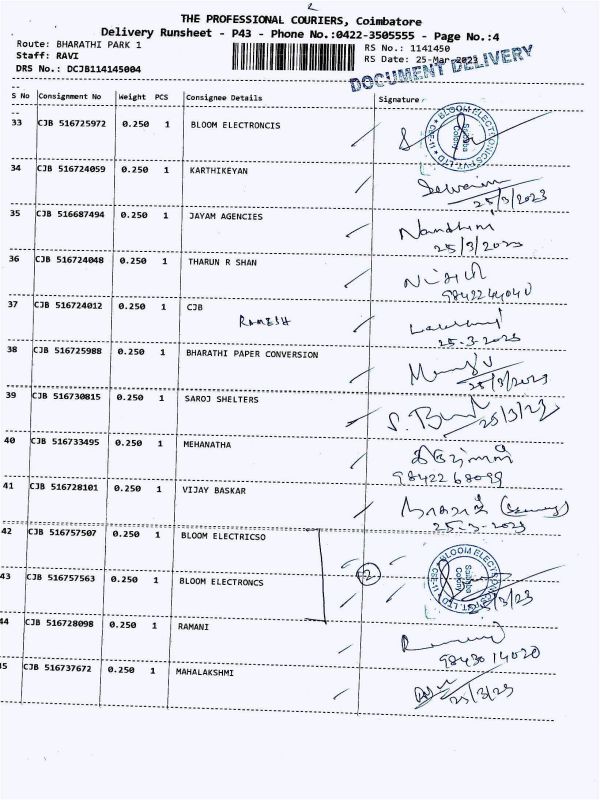 2
THE PROFESSIONAL COURIERS, Coimbatore
Delivery Runsheet - P43 - Phone No.:0422-3505555 - Page No.:4
Route: BHARATHI PARK 1 RS No.: 1141450
Staff: RAVI RS Date: 25-Mar-2023
DRS No.: DCJB114145004
DOCUMENT DELIVERY
S No Consignment No Weight PCS Consignee Details Signature
33 CJB 516725972 0.250 1 BLOOM ELECTRONCIS
34 CJB 516724059 0.250 1 KARTHIKEYAN
25/3/2023
35 CJB 516687494 0.250 1 JAYAM AGENCIES Nandhini
25/3/2023
36 CJB 516724048 0.250 1 THARUN R SHAN
9842244040
37 CJB 516724012 0.250 1 CJB
RAMESH
25-3-2023
38 CJB 516725988 0.250 1 BHARATHI PAPER CONVERSION
25/3/2023
39 CJB 516730815 0.250 1 SAROJ SHELTERS
25/3/23
40 CJB 516733495 0.250 1 MEHANATHA
41 CJB 516728101 0.250 1 VIJAY BASKAR
25-3-2023
42 CJB 516757507 0.250 1 BLOOM ELECTRICSO
43 CJB 516757563 0.250 1 BLOOM ELECTRONCS
2
25/3/23
44 CJB 516728098 0.250 1 RAMANI
9843014020
45 CJB 516737672 0.250 1 MAHALAKSHMI
25/3/23